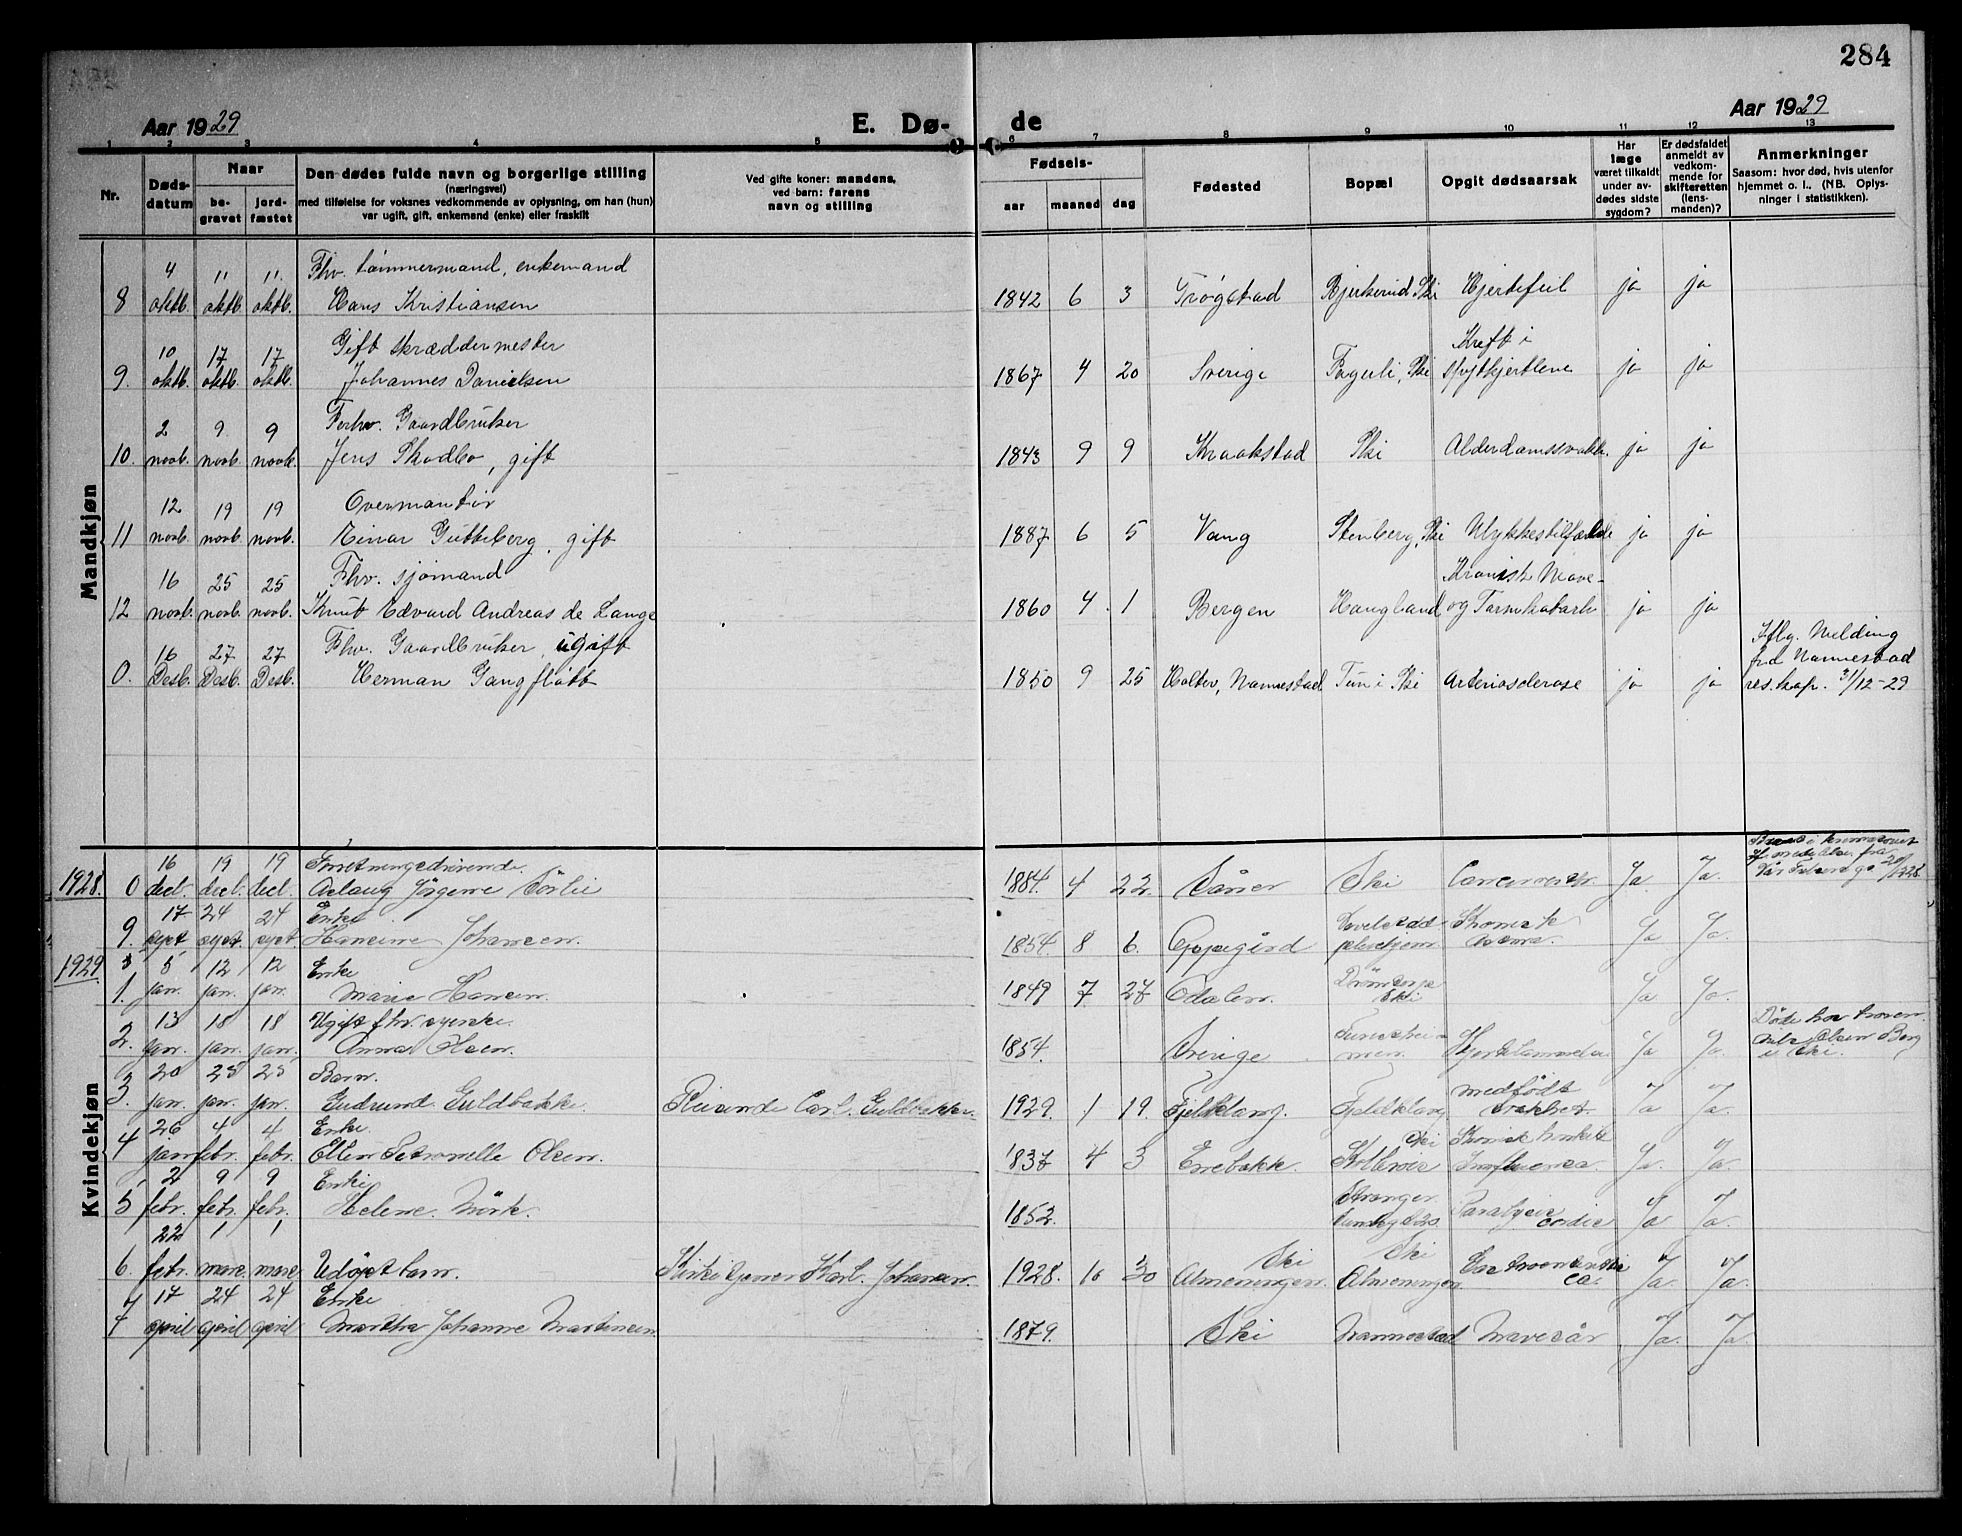 284
Aar 1929
E. Dø-
de
Aar 1929
1 2 3 4 5 6 7 8 9 10 11 12 13
Nr.
Døds-
datum
Naar
be-
gravet
jord-
fæstet
Den dødes fulde navn og borgerlige stilling
(næringsvei)
med tilføielse for voksnes vedkommende av oplysning, om han (hun)
var ugift, gift, enkemand (enke) eller fraskilt
Ved gifte koner: mandens,
ved barn: farens
navn og stilling
Fødsels-
aar maaned dag
Fødested
Bopæl
Opgit dødsaarsak
Har
læge
været tilkaldt
under av-
dødes sidste
sygdom?
Er dødsfaldet
anmeldt av
vedkom-
mende for
skifteretten
(lens-
manden)?
Anmerkninger
Saasom: hvor død, hvis utenfor
hjemmet o. l.. (NB. Oplys-
ninger i statistikken).
Mandkjøn
4 11 11 Fhv. tømmermand, enkemand
8 oktb. oktb. oktb. Hans Kristiansen 1842 6 3 Trøgstad Bjerkerud, Ski Hjertefeil ja ja
10 17 17 Gift skræddermester Kreft i
9. oktb. oktb. oktb. Johannes Danielsen 1867 4 20 Sverige Fagerli, Ski spytkjertlene ja ja
2 9 9 Forhv. Gaardbruker
10. novb. novb. novb. Jens Skodbo, gift 1843 9 9 Kraakstad Ski Alderdomssvakh. ja ja
12 19 19 Overmontør
11 novb. novb. novb. Einar Gutteberg, gift 1887 6 5 Vang Stenberg, Ski Ulykkestilfælde ja ja
16 25 25 Fhv. sjømand Kronisk Mave-
12 novb. novb. novb. Knut Edvard Andreas de Lange 1860 4 1 Bergen Haugland og Tarmkatarh ja ja
16 27 27 Fhv. Gaardbruker, ugift
0. Desb. Desb. Desb. Herman Gangfløtt 1850 9 25 Holter, Nannestad Tun i Ski Arteriosclerose ja ja
Iflg. Melding
fra Nannestad
res. kap. 31/12-29
Kvindekjøn
16 19 19 Forretningsdrivende
1928. 0 decb. decb. decb. Aslaug Jørgine Sørlie 1884. 4 22. Såner Ski Ja. Ja.
17 24 24 Enke
9. sept sept sept. Hansine Johansen. 1854. 8 6. Oppegård pleiehjem Ja Ja.
1929 5 12 12 Enke
1. jan. jan. jan. Marie Hansen 1849 7 27 Odalen. Drømtorp Ski Ja Ja.
13 18 18 Ugift fhv. syerske.
2. jan. jan. jan. Anna Olsen. 1854. Sverige Hjertelammelse Ja Ja.
Døde hos broren
Olsen Berg
i Ski.
20 25 25 Barn.
3. jan. jan. jan. Gudrund Guldbakke. Reisende Carl Guldbakke. 1929. 1 19. Fjeldklang. Fjeldklang medfødt svakhet Ja Ja.
26 4 4 Enke.
4 jan. febr. febr. Ellen Petronelle Olsen. 1837 4 3 Enebakk. Ski Kolbotn Kronisk bronkitt Influensa. Ja. Ja.
2 9 9 Enke
5 febr. febr. febr. Helene Mørk. 1852. Paralysis cordis Ja Ja.
22 1 1
6. febr. mars mars Udøpt barn. Kirketjener Karl Johansen. 1928. 10 30 Ski Almenningen. Ski Almenningen. Ja. Ja.
17 24 24 Enke
7 april april april Martha Johanne Martinsen 1879. Ski Nannestad Mavesår Ja. Ja.